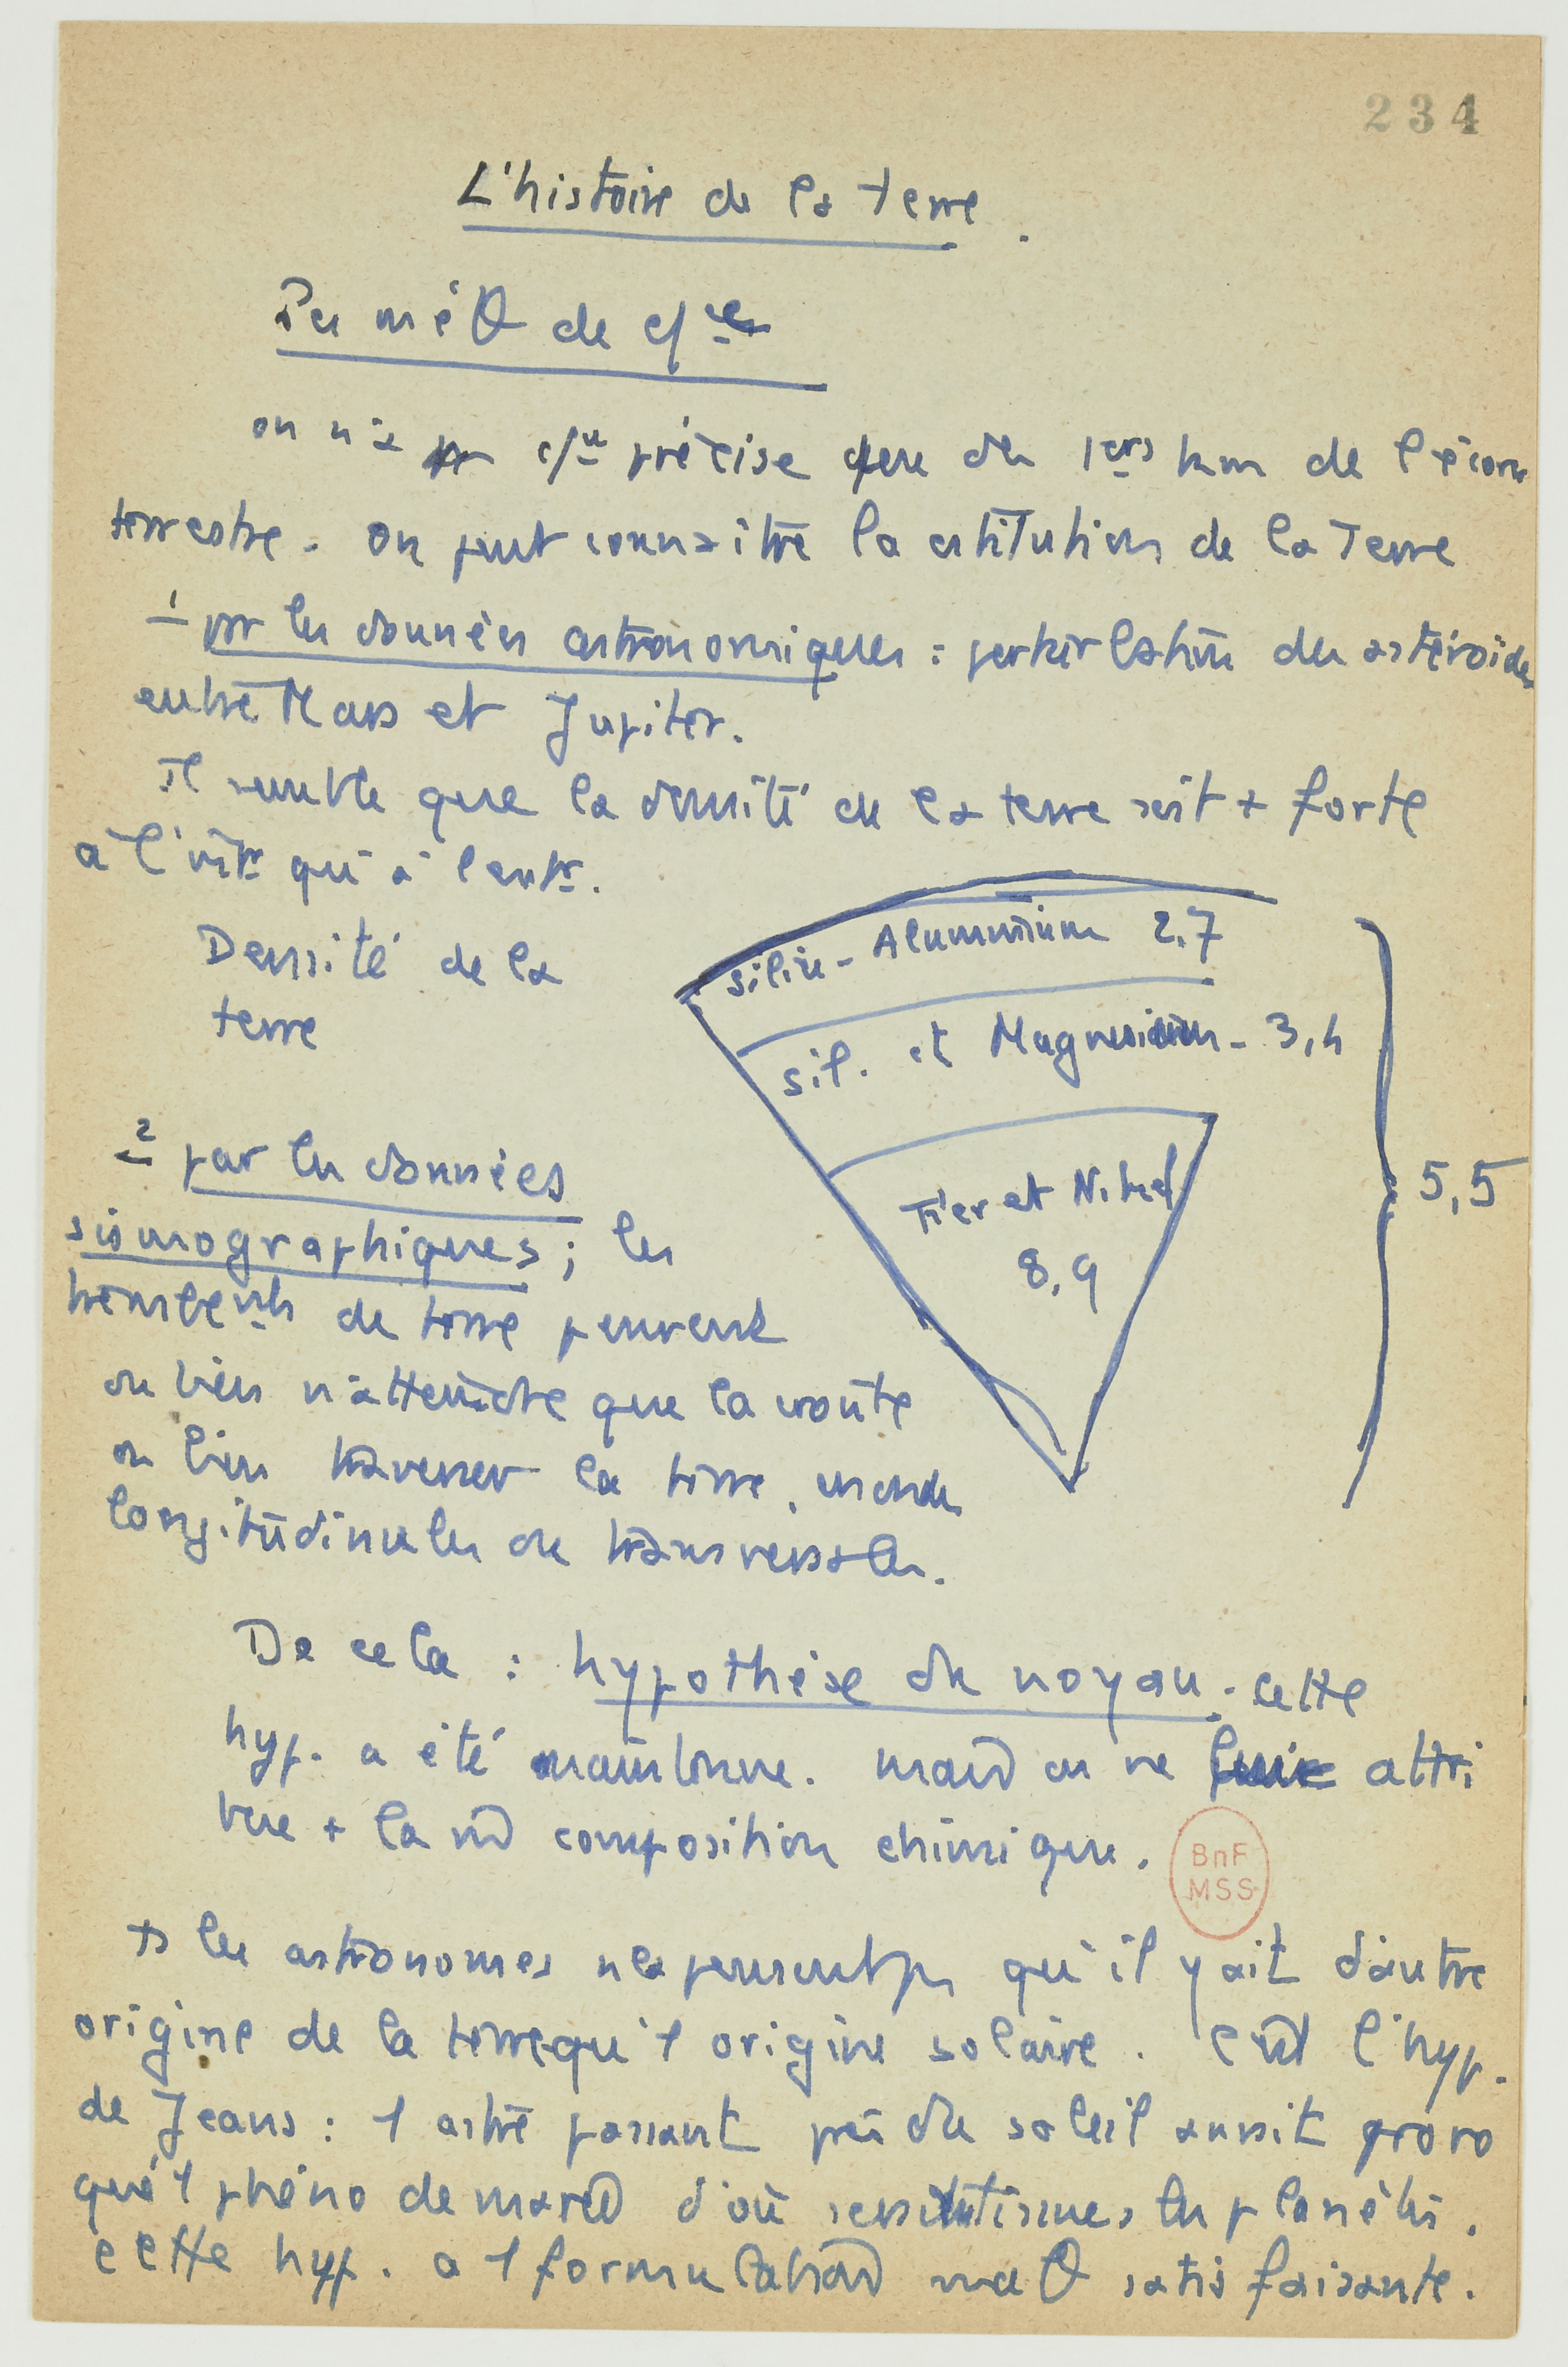 234
L'histoire de la terre.
Les méθ de c/ce
on n'a pas c/ce précise que des 1ers km de l'écorce
terrestre. On peut connaître la cstitution de la Terre
1 par les données astronomiques : perturbation des astéroïdes
entre Mars et Jupiter.
Il semble que la densité de la terre soit + forte
à l'intr qu'à l'extr.
Densité de la
terre
Silice - Aluminium 2,7
Sil. et Magnesium - 3,4
Fer et Nickel
8,9
5,5
2 par les données
sismographiques ; les
tremblents de terre peuvent
ou bien n'atteindre que la croûte
ou bien traverser la terre, ondes
longitudinales ou transversales.
De cela : hypothèse du noyau. Cette
hyp. a été maintenue. mais on ne lui attri
bue + la m̂ composition chimique.
Ts les astronomes ne pensent pas qu'il y ait d'autre
origine de la terre qu'1 origine solaire. C'est l'hyp.
de Jeans : 1 astre passant près du soleil aurait provo
qué 1 phéno de marée d'où seraient issues les planètes.
Cette hyp. a 1 formulation maθ satisfaisante.
BnF
MSS